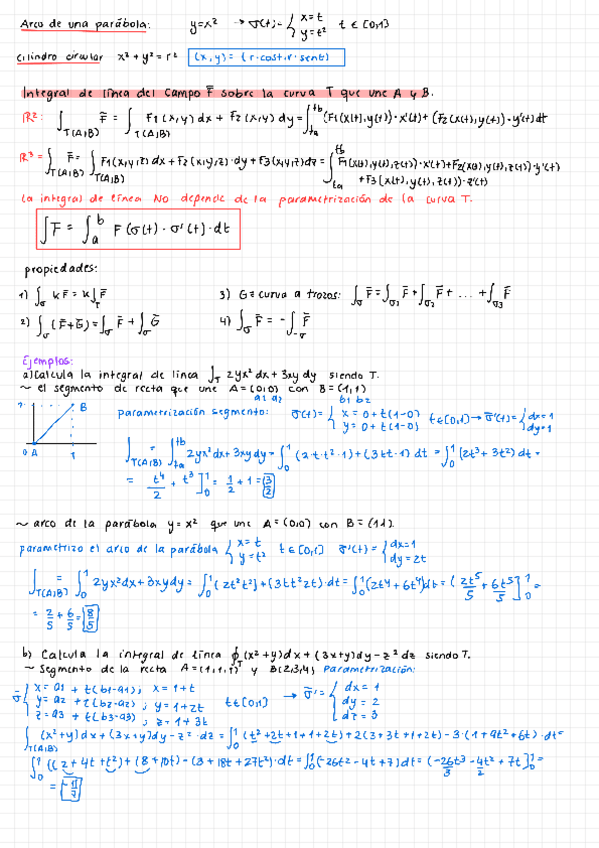 Arco de una parábola: y=x² → σ(t)= { x=t y=t² t ∈ [0,1]
cilindro circular x²+y²=r² (x,y) = (r·cost, r·sent)
Integral de línea del campo F̄ sobre la curva T que une A y B.
R²: ∫T(A,B) F̄ = ∫T(A,B) F1(x,y)dx + F2(x,y)dy = ∫ta^tb (F1(x(t),y(t))·x'(t) + (F2(x(t),y(t))·y'(t) dt
R³ = ∫T(A,B) F̄ = ∫T(A,B) F1(x,y,z)dx + F2(x,y,z)·dy + F3(x,y,z)dz = ∫ta^tb F1(x(t),y(t),z(t))·x'(t) + F2(x(t),y(t),z(t))·y'(t)
+ F3(x(t),y(t),z(t))·z'(t)
La integral de línea NO depende de la parametrización de la curva T.
∫F̄ = ∫a^b F(σ(t)·σ'(t)·dt
propiedades:
1) ∫σ kF̄ = k∫T F̄ 3) G= curva a trozos: ∫σ F̄ = ∫σ1 F̄ + ∫σ2 F̄ + ... + ∫σ3 F̄
2) ∫σ (F̄+Ḡ) = ∫σ F̄ + ∫σ Ḡ 4) ∫σ F̄ = -∫-σ F̄
Ejemplos:
a) Calcula la integral de línea ∫T 2yx²dx + 3xy dy siendo T.
~ el segmento de recta que une A=(0,0) con B=(1,1)
a1 a2 b1 b2
1 B
0 A 1
parametrización segmento: σ̄(t) = { x = 0+t(1-0) y = 0+t(1-0) t∈[0,1] → σ̄'(t) = { dx=1 dy=1
∫T(A,B) = ∫ta^tb 2yx²dx + 3xydy = ∫0^1 (2·t·t²·1) + (3tt·1) dt = ∫0^1 (2t³+3t²) dt =
= t⁴/2 + t³]0^1 = 1/2 + 1 = 3/2
~ arco de la parábola y=x² que une A=(0,0) con B=(1,1).
parametrizo el arco de la parábola { x=t y=t² t∈[0,1] σ̄'(t) = { dx=1 dy=2t
∫T(A,B) = ∫0^1 2yx²dx + 3xydy = ∫0^1 (2t²t²) + (3tt²2t)·dt = ∫0^1 (2t⁴+6t⁴)dt = (2t⁵/5 + 6t⁵/5]0^1 =
= 2/5 + 6/5 = 8/5
b) Calcula la integral de línea ∮T (x²+y)dx + (3x+y)dy - z²dz siendo T.
~ Segmento de la recta A=(1,1,1) y B(2,3,4) Parametrización:
σ̄ { x = a1 + t(b1-a1); x=1+t
y = a2 + t(b2-a2); y=1+2t t∈[0,1] → σ̄' = { dx = 1 dy = 2 dz = 3
z = a3 + t(b3-a3); z=1+3t
∫T(A,B) (x²+y)dx + (3x+y)dy - z²·dz = ∫0^1 (t²+2t+1+1+2t) + 2(3+3t+1+2t) - 3·(1+9t²+6t)·dt =
∫0^1 ((2+4t+t²) + (8+10t) - (3+18t+27t²)·dt = ∫0^1 (-26t²-4t+7)dt = (-26t³/3 - 4t²/2 + 7t]0^1 =